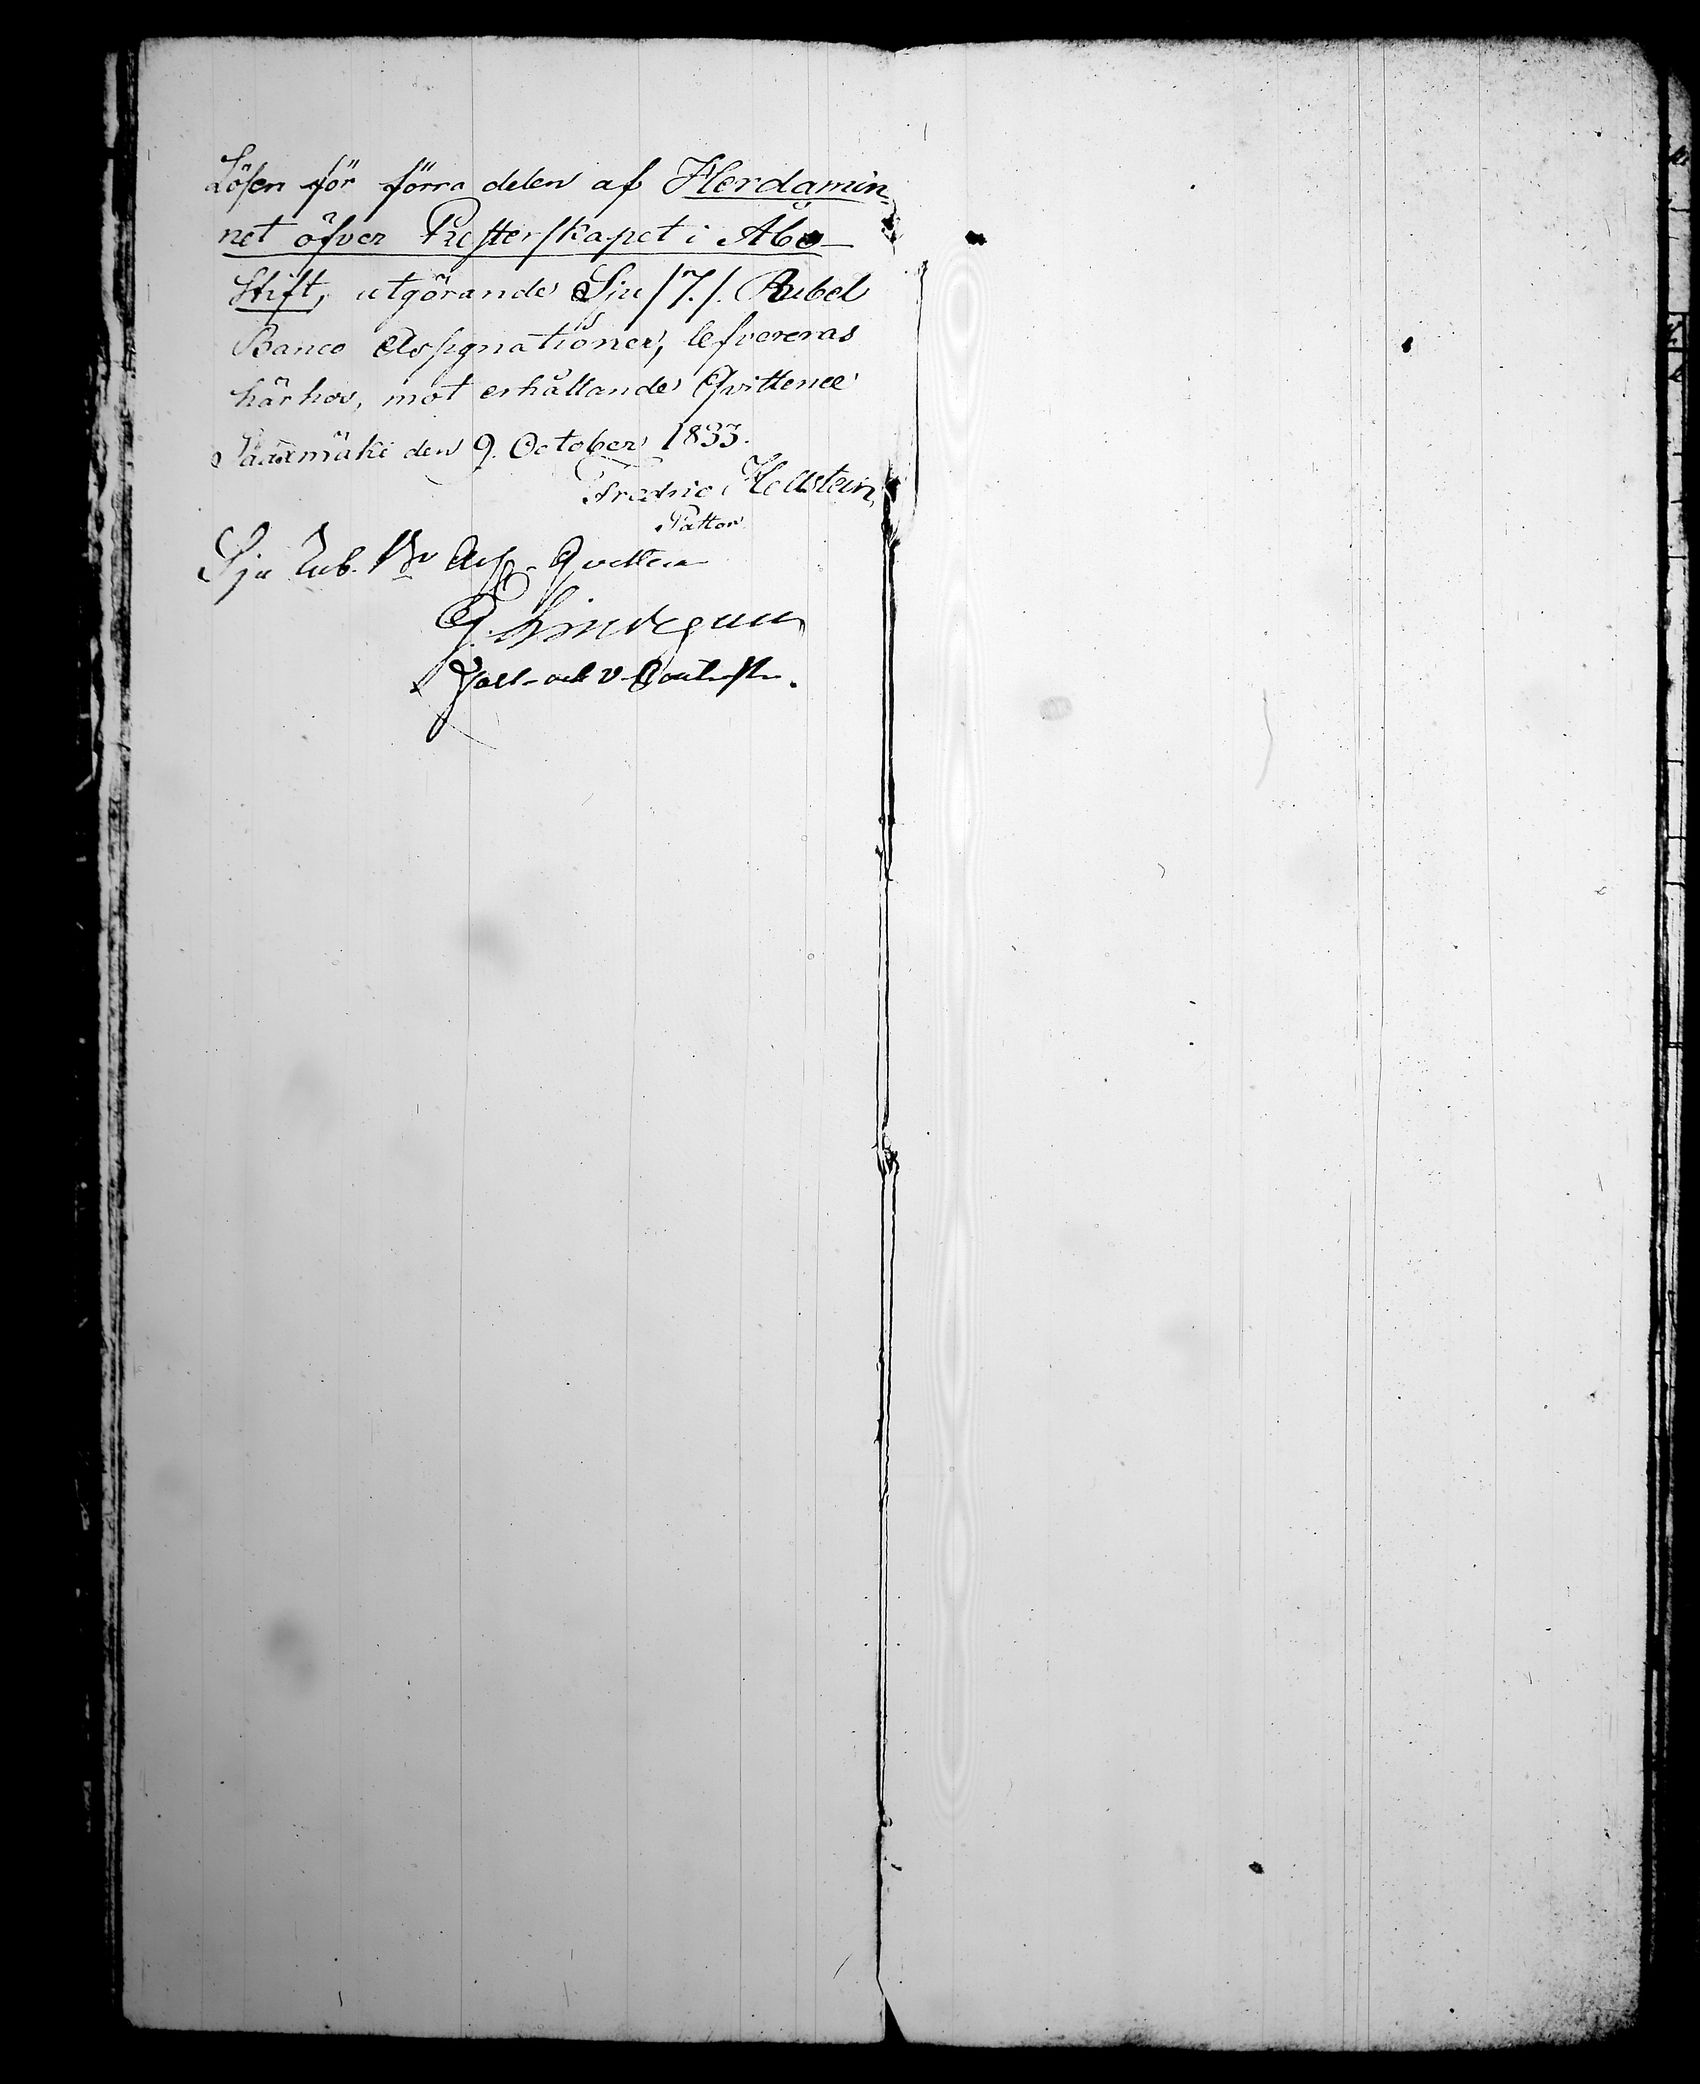 Lösen för förra delen af Herdamin-
net öfver Presterskapet i Åbo
Stift, utgörande Sju /7./. Rubel
Banco Assignationer, lefvereras
härhos, mot erhållande Qvittence
Sääxmäki den 9. October 1833.
Fredric Hellstein,
Pastor
Sju Rub. Bo Ass. Qvitteras
G. Lindegren